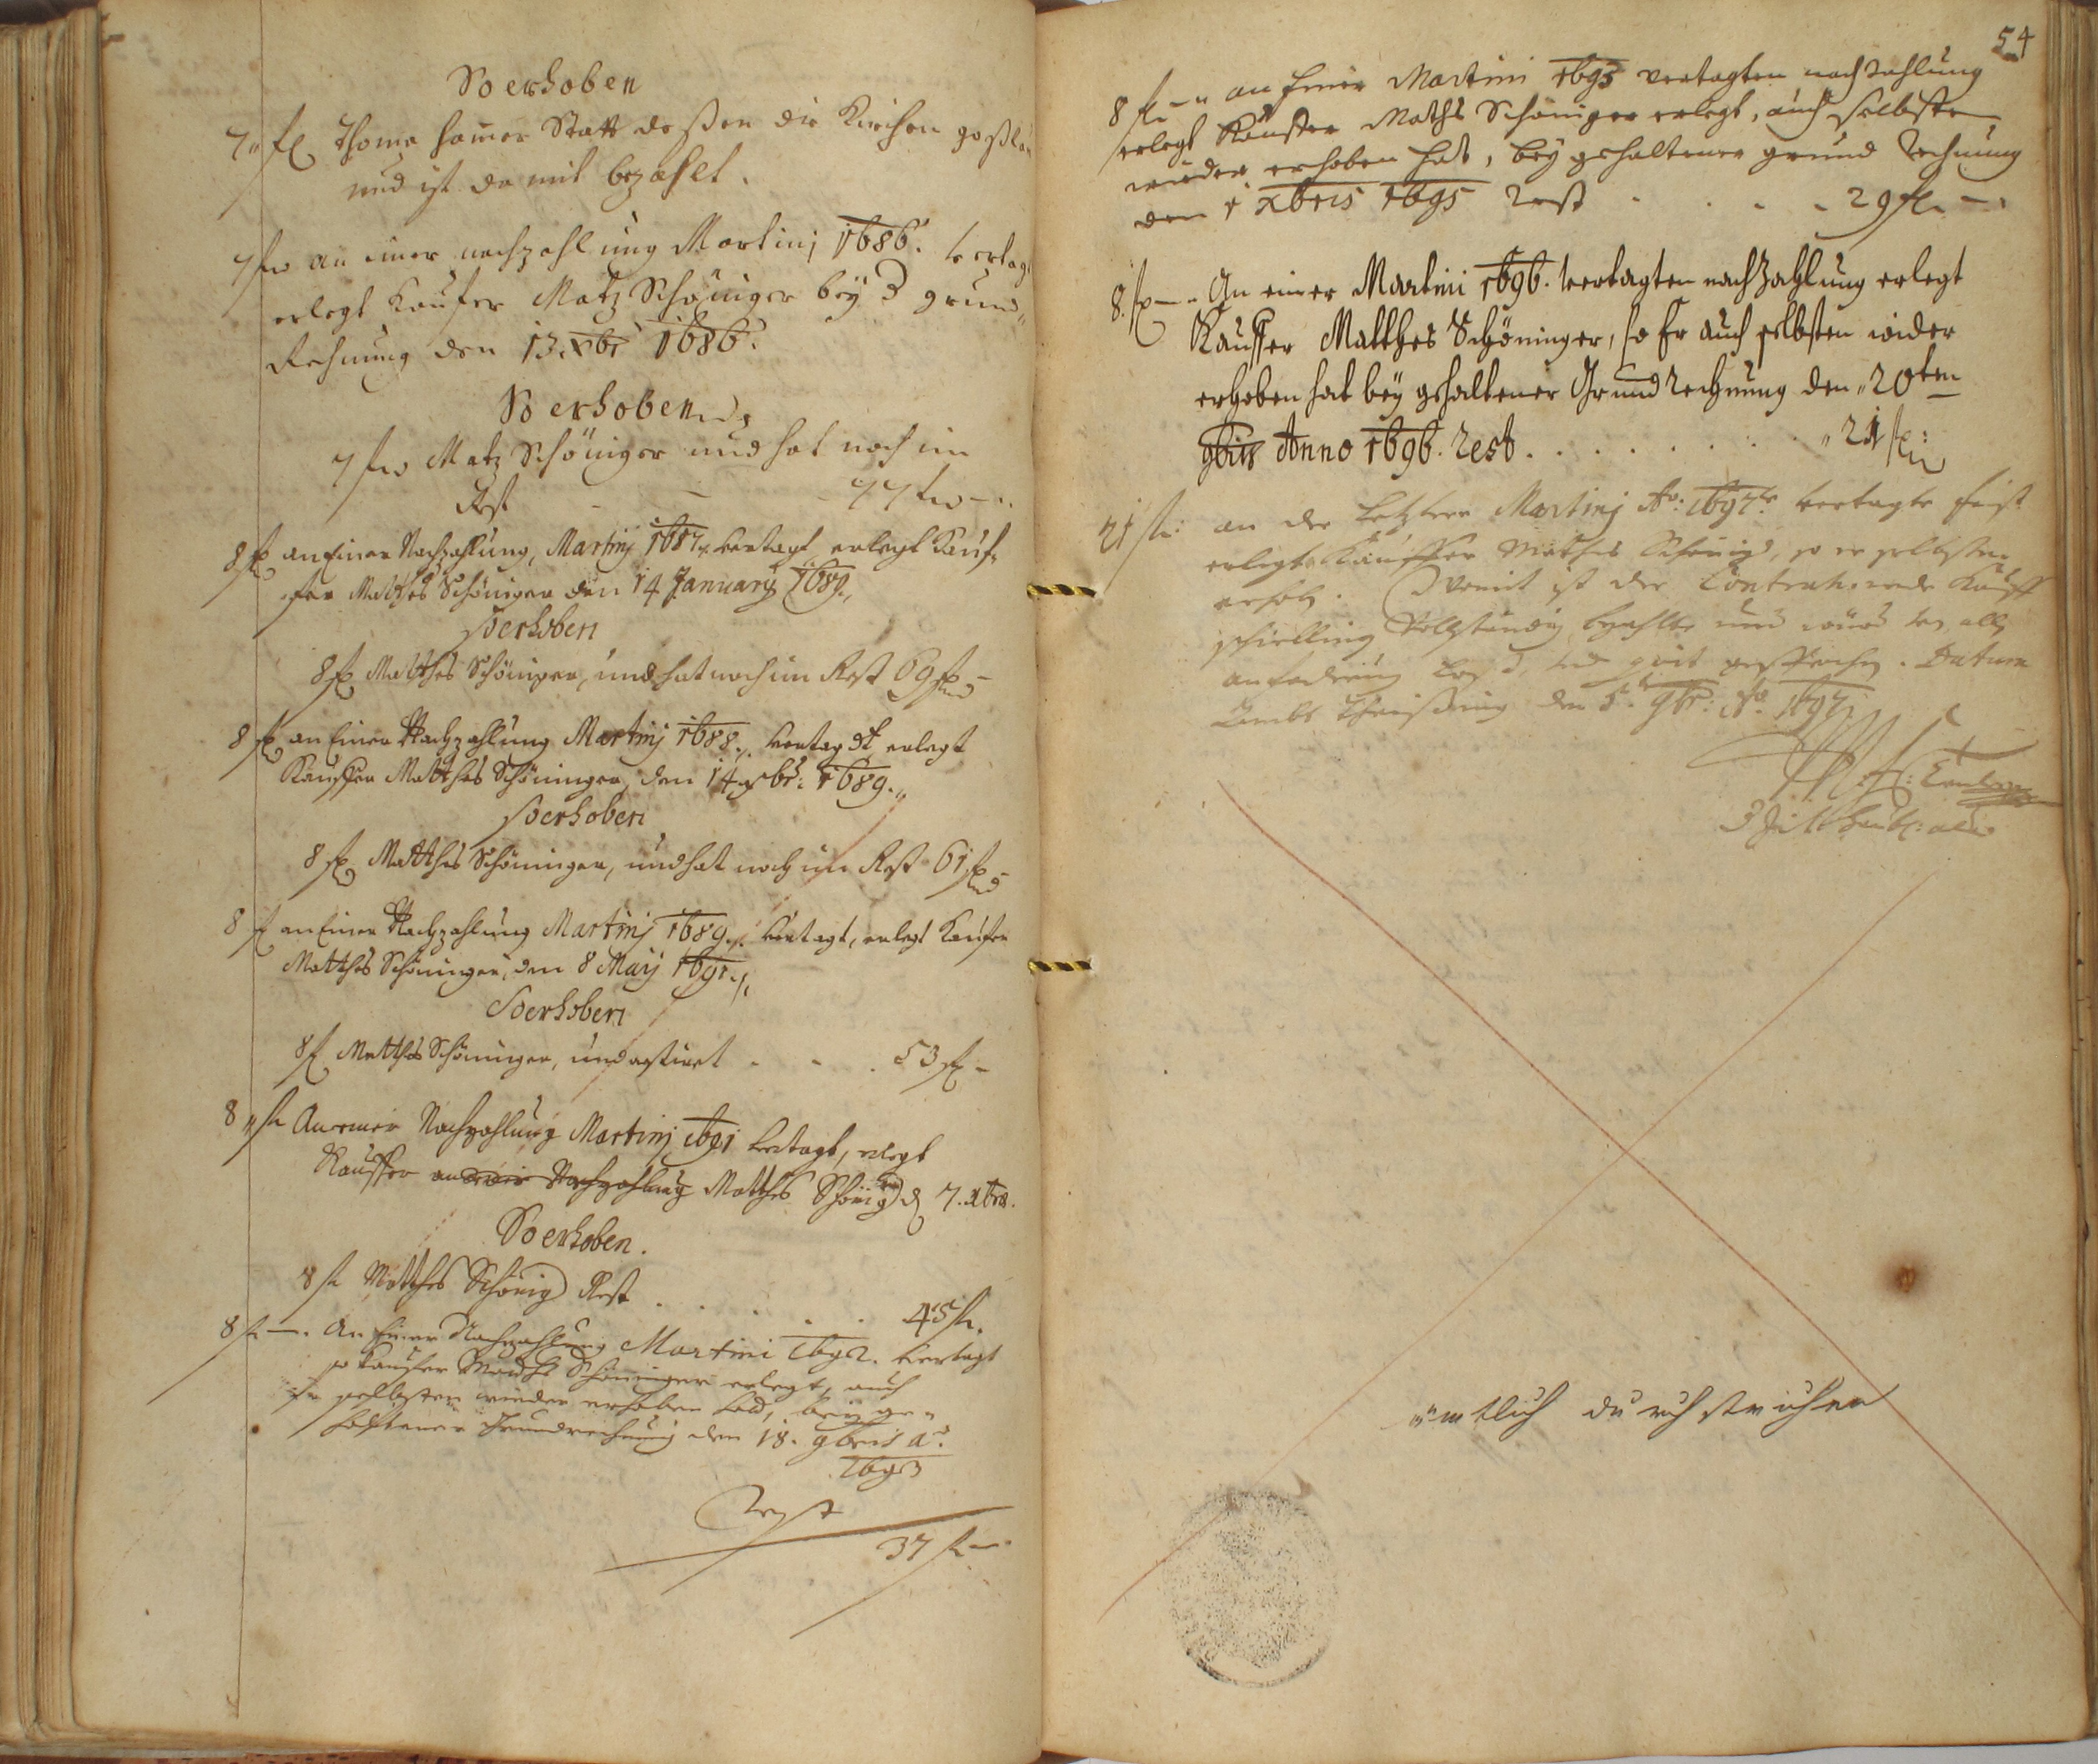 So erhoben
7 fl Thoma Hamer Statt deßen die Kirchen
und ist damit bezahlt.
7 fl an einer nachzahlung Martinj 1686.
erlegt Kaufer Matz Schöniger bey grund
Rechnung den 13. Xbr 1686.
So erhoben
7 fl Matz Schöniger und hat noch im
Rest 77 fl
8 fl an Einer Nachzahlung, Martinj 1687. vertagt, erlegt Kauf-
fer Matthes Schöniger den 14 January 1689.
So erhoben
8 fl Matthes Schöniger, und hat noch im Rest 69 fl
8 fl an Einer Nachzahlung Martinj 1688. vertagt, erlegt
Kauffer Matthes Schöninger, den 14 1689.
So erhoben
8 fl Matthes Schöninger, und hat noch im Rest 61 fl
8 fl an Einer Nachzahlung Martinj 1689. vertagt, erlegt Kaufer
Matthes Schöninger, den 8 Maij 1691.
So erhoben
8 fl Matthes Schöninger, und restiret - - . 53 fl -
8 fl An einer Nachzahlung Martinj 1691 vertagt, erlegt
Kauffer an einer Nachzahlung Matthes Schönig 7. xbris.
So erhoben.
8 fl Matthes Schönig Rest . . . . . 45 fl.
8 fl —. An Einer Nachzahlung Martini 1692. vertagt
so Kauffer Matthes Schöninger erlegt, auch
selbsten wieder erhoben hat, bey ge-
haltener Grundrechnung den 18. 9bris a.
1693
Rest
37 fl —
54
8 fl — an einer Martini 1695 vertagten nachzahlung
erlegt Kauffer Mathes Schöniger erlegt, auch selbsten
wieder erhoben hat, bey gehaltener grund Rechnung
den 1 Xbris 1695 Rest . . . . 29 fl. —
8. fl — An einer Martini 1696. vertagten nachzahlung erlegt
Kauffer Matthes Schöninger, so Er auch selbsten wider
erhoben hat bey gehaltener Grund Rechnung den 20ten
9bris Anno 1696. Rest . . . . . . . 21 fl:
21 fl: an der letztern Martinj Ao: 1697 vertagte frist
erlegt Kauffer Mathes Schönig, so er selbsten
erhob. Womit ist der Contrahirende Kauff
schilling Vollständig bezahlt und
und quit gesprochen. Datum
den 5. 9br: Ao. 1697
ämtlich durchstrichen